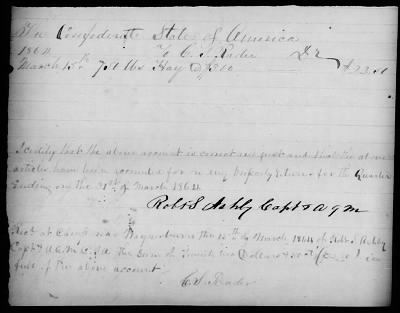 The Confederate States of America
1864 To C. S. Rader Dr
March 15th 750 lbs Hay @ $3.00 $22.50
I certify that the above account is correct and just and that the above
articles have been accounted for on my property return for the Quarter
Ending on the 31st of March 1864
Robt S Ashby Capt & A Q M
Recd at Camp near the 15th March 1864 of Robt S Ashby
Capt & A.Q.M. C.S.A. the sum of Twenty two Dollars & 50 cts in
full of the above account
C. S. Rader